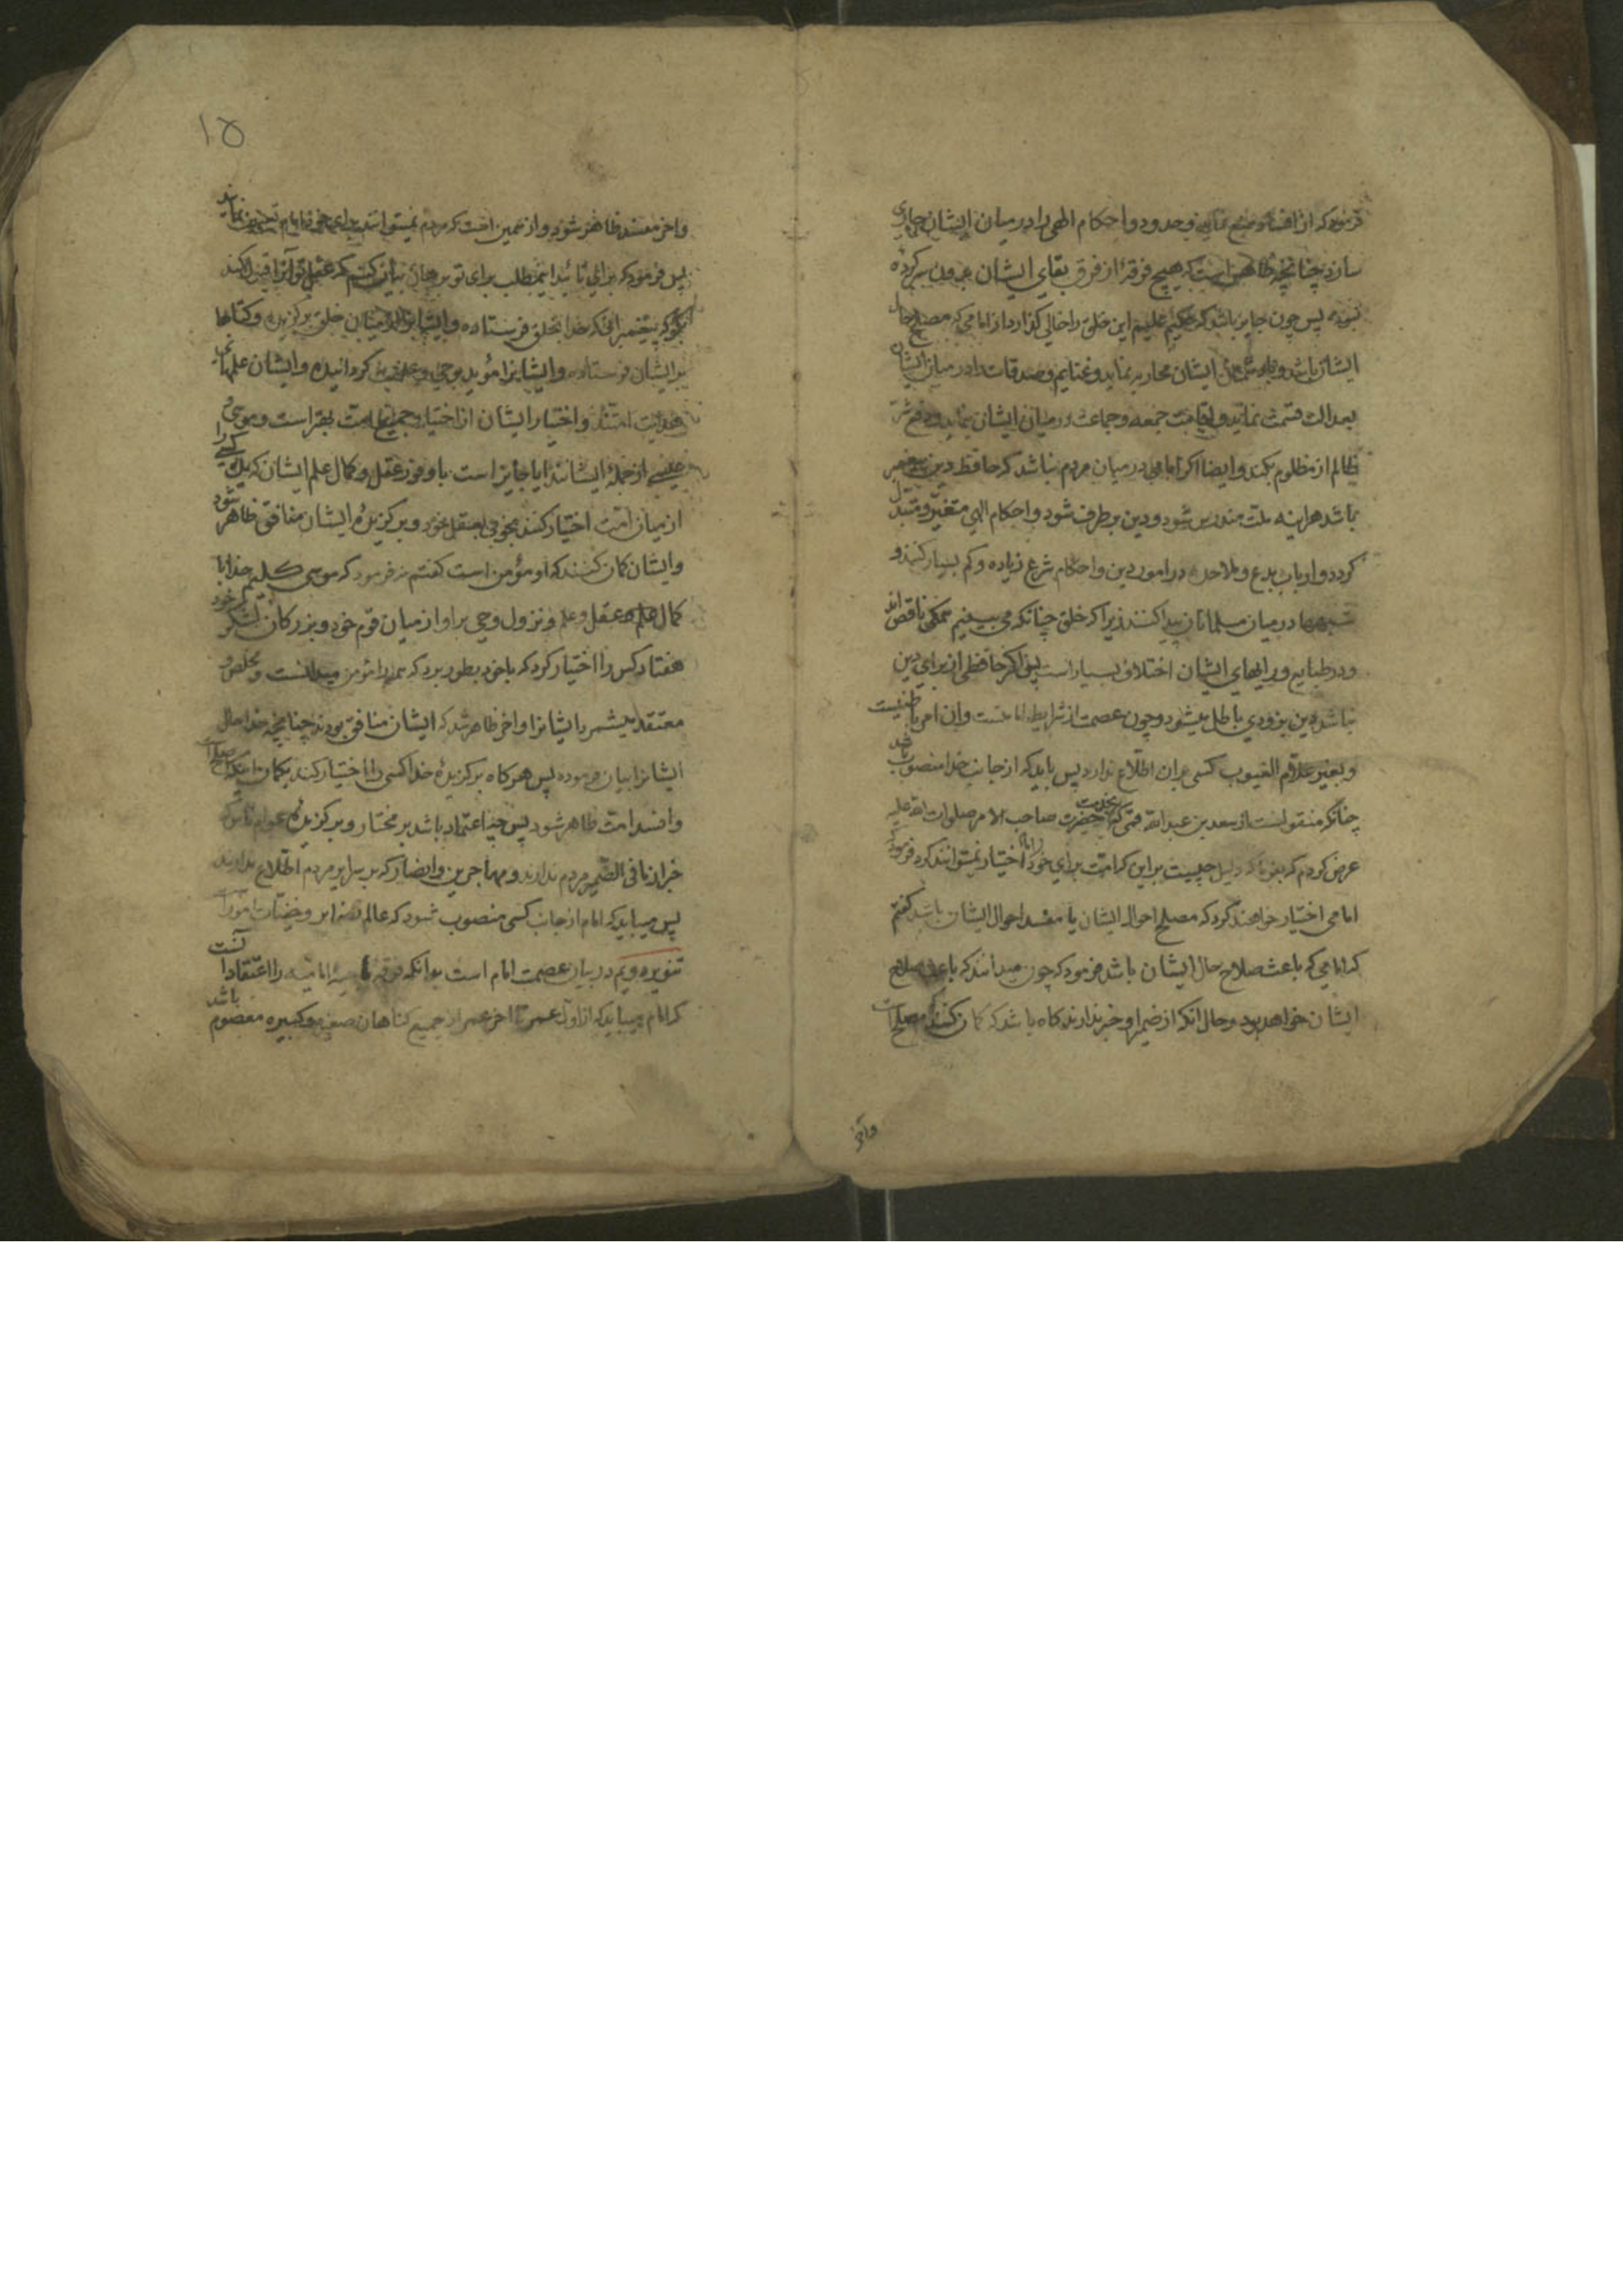 فرمود که از افساد منع نماید و حدود و احکام الهی را در میان ایشان جاری
سازد چنانچه ظاهر است که هیچ فرقهٔ از فرق بقای ایشان بدون سرکرده
نبوده پس چون جایز باشد که حکیم علیم این خلق را خالی گذارد از امامی که مصلح حال
ایشان باشد و با دشمنان ایشان محاربه نماید و غنایم و صدقات را در میان ایشان
بعدالت قسمت نماید و اقامت جمعه و جماعت در میان ایشان نماید و دفع شر
ظالم از مظلوم بکند و ایضا اگر امامی در میان مردم نباشد که حافظ دین پیغمبر
باشد هراینه ملت مندرس شود و دین برطرف شود و احکام الهی متغیر و متبدل
گردد و ارباب بدع و ملاحده در امور دین و احکام شرع زیاده و کم بسیار کنند و
شبهها در میان مسلمانان پیدا کنند زیرا که خلق چنانکه می بینیم همگی ناقص اند
و در طبایع و رایهای ایشان اختلاف بسیار است پس اگر حافظی از برای دین
نباشد دین بزودی باطل میشود و چون عصمت از شرایط امامتست و ان امر باطنیست
و بغیر علام الغیوب کسی بران اطلاع ندارد پس باید که از جانب خدا منصوب باشد
چنانکه منقولست از سعد بن عبد الله قمی که بخدمت حضرت صاحب الامر صلوات الله علیه
عرض کردم که بفرما که دلیل چیست براین که امت برای خود امام اختیار نمیتوانند کرد فرمود که
امامی اختیار خواهند کرد که مصلح احوال ایشان یا مفسد احوال ایشان باشد گفتم
که امامی که باعث صلاح حال ایشان باشد فرمود که چون میدانند که باعث صلاح
ایشان خواهد بود و حال انکه از ضمیر او خبر ندارند گاه باشد که گمان کنند که مصلح است
واخر
۱۵
و اخر مفسد ظاهر شود و از همین است که مردم نمیتوانند برای خود امام تعیین نمایند
پس فرمود که برای تائید اینمطلب برای تو برهانی بیان کنم که عقل تو انرا قبول کند
بگو که پیغمبرانی که خدا بخلق فرستاده و ایشانرا از میان خلق برگزیده و کتابها
بر ایشان فرستاده و ایشانرا مؤید بوحی و عصمت گردانیده و ایشان علمهای
هدایت امتند و اختیار ایشان از اختیار جمیع امت بهتر است و موسی و
عیسی از جملهٔ ایشانند ایا جایز است با وفور عقل و کمال علم ایشان که یک کسی را
از میان امت اختیار کنند بخوبی بعقل خود و برگزیدهٔ ایشان منافق ظاهر شود
و ایشان گمان کنند که او مؤمن است گفتم نه فرمود که موسی کلیم خدا با
کمال علم و عقل و علم و نزول وحی براو از میان قوم خود و بزرگان لشکر خود
هفتاد کس را اختیار کرد که با خود بطور برد که همه را مؤمن میدانست و مخلص و
معتقد میشمرد ایشانرا و اخر ظاهر شد که ایشان منافق بودند چنانچه خدا حال
ایشانرا بیان فرموده پس هرگاه برگزیدهٔ خدا کسی را اختیار کند بگمان اینکه اصلح است
و افسد امت ظاهر شود پس چه اعتماد باشد بر مختار و برگزیدهٔ عوام ناس که
خبر از ما فی الضمیر مردم ندارند و مهاجرین و انصار که بر سرایر مردم اطلاع ندارند
پس میباید که امام از جانب کسی منصوب شود که عالم بضمایر و خفیات امور است
تنویر دویم در بیان عصمت امام است بدانکه فرقه ناجیه امامیه را اعتقاد آنست
که امام میباید که از اول عمر تا اخر عمر از جمیع گناهان صغیره و کبیره معصوم باشد